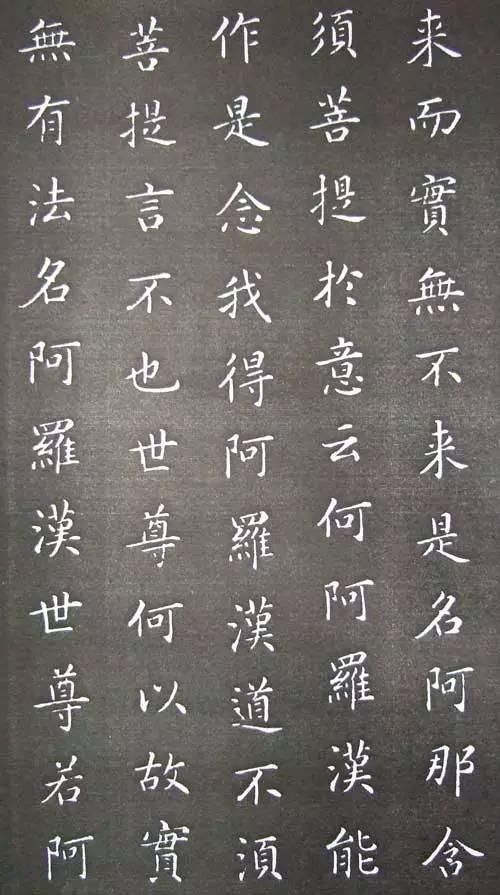 来而實無不来是名阿那含
須菩提於意云何阿羅漢能
作是念我得阿羅漢道不須
菩提言不也世尊何以故實
無有法名阿羅漢世尊若阿